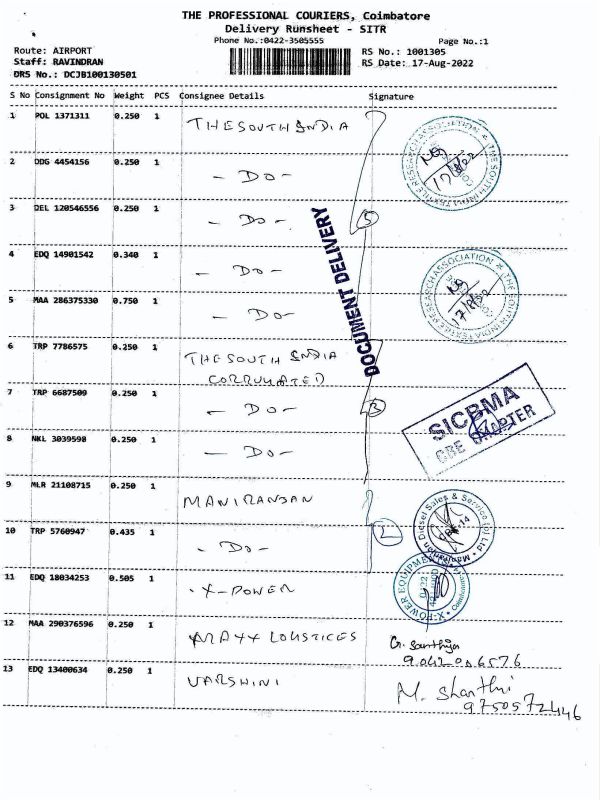 THE PROFESSIONAL COURIERS, Coimbatore
Delivery Runsheet - SITR
Phone No.:0422-3505555 Page No.:1
Route: AIRPORT RS No.: 1001305
Staff: RAVINDRAN RS Date: 17-Aug-2022
DRS No.: DCJB100130501
S No Consignment No Weight PCS Consignee Details Signature
1 POL 1371311 0.250 1 THE SOUTH INDIA
2 DDG 4454156 0.250 1 - DO -
3 DEL 120546556 0.250 1 - DO -
5
4 EDQ 14901542 0.340 1 - DO -
5 MAA 286375330 0.750 1 - DO -
DOCUMENT DELIVERY
6 TRP 7786575 0.250 1 THE SOUTH INDIA
CORRUHATED
7 TRP 6687509 0.250 1 - DO -
3
8 NKL 3039590 0.250 1 - DO -
9 MLR 21108715 0.250 1 MANIRANJAN
10 TRP 5760947 0.435 1 - DO -
2
11 EDQ 18034253 0.505 1 X-POWER
12 MAA 290376596 0.250 1 LOUSTICES
13 EDQ 13400634 0.250 1 VARSHINI
THE SOUTH INDIA TEXTILE RESEARCH ASSOCIATION
17/8/22
THE SOUTH INDIA TEXTILE RESEARCH ASSOCIATION
17/8/22
SICBMA
CBE CHAPTER
Diesel Sales & Service (p) Ltd
CBE-14
X-POWER EQUIPMENT
G. Santhiya
M. Shanthi
9750572446